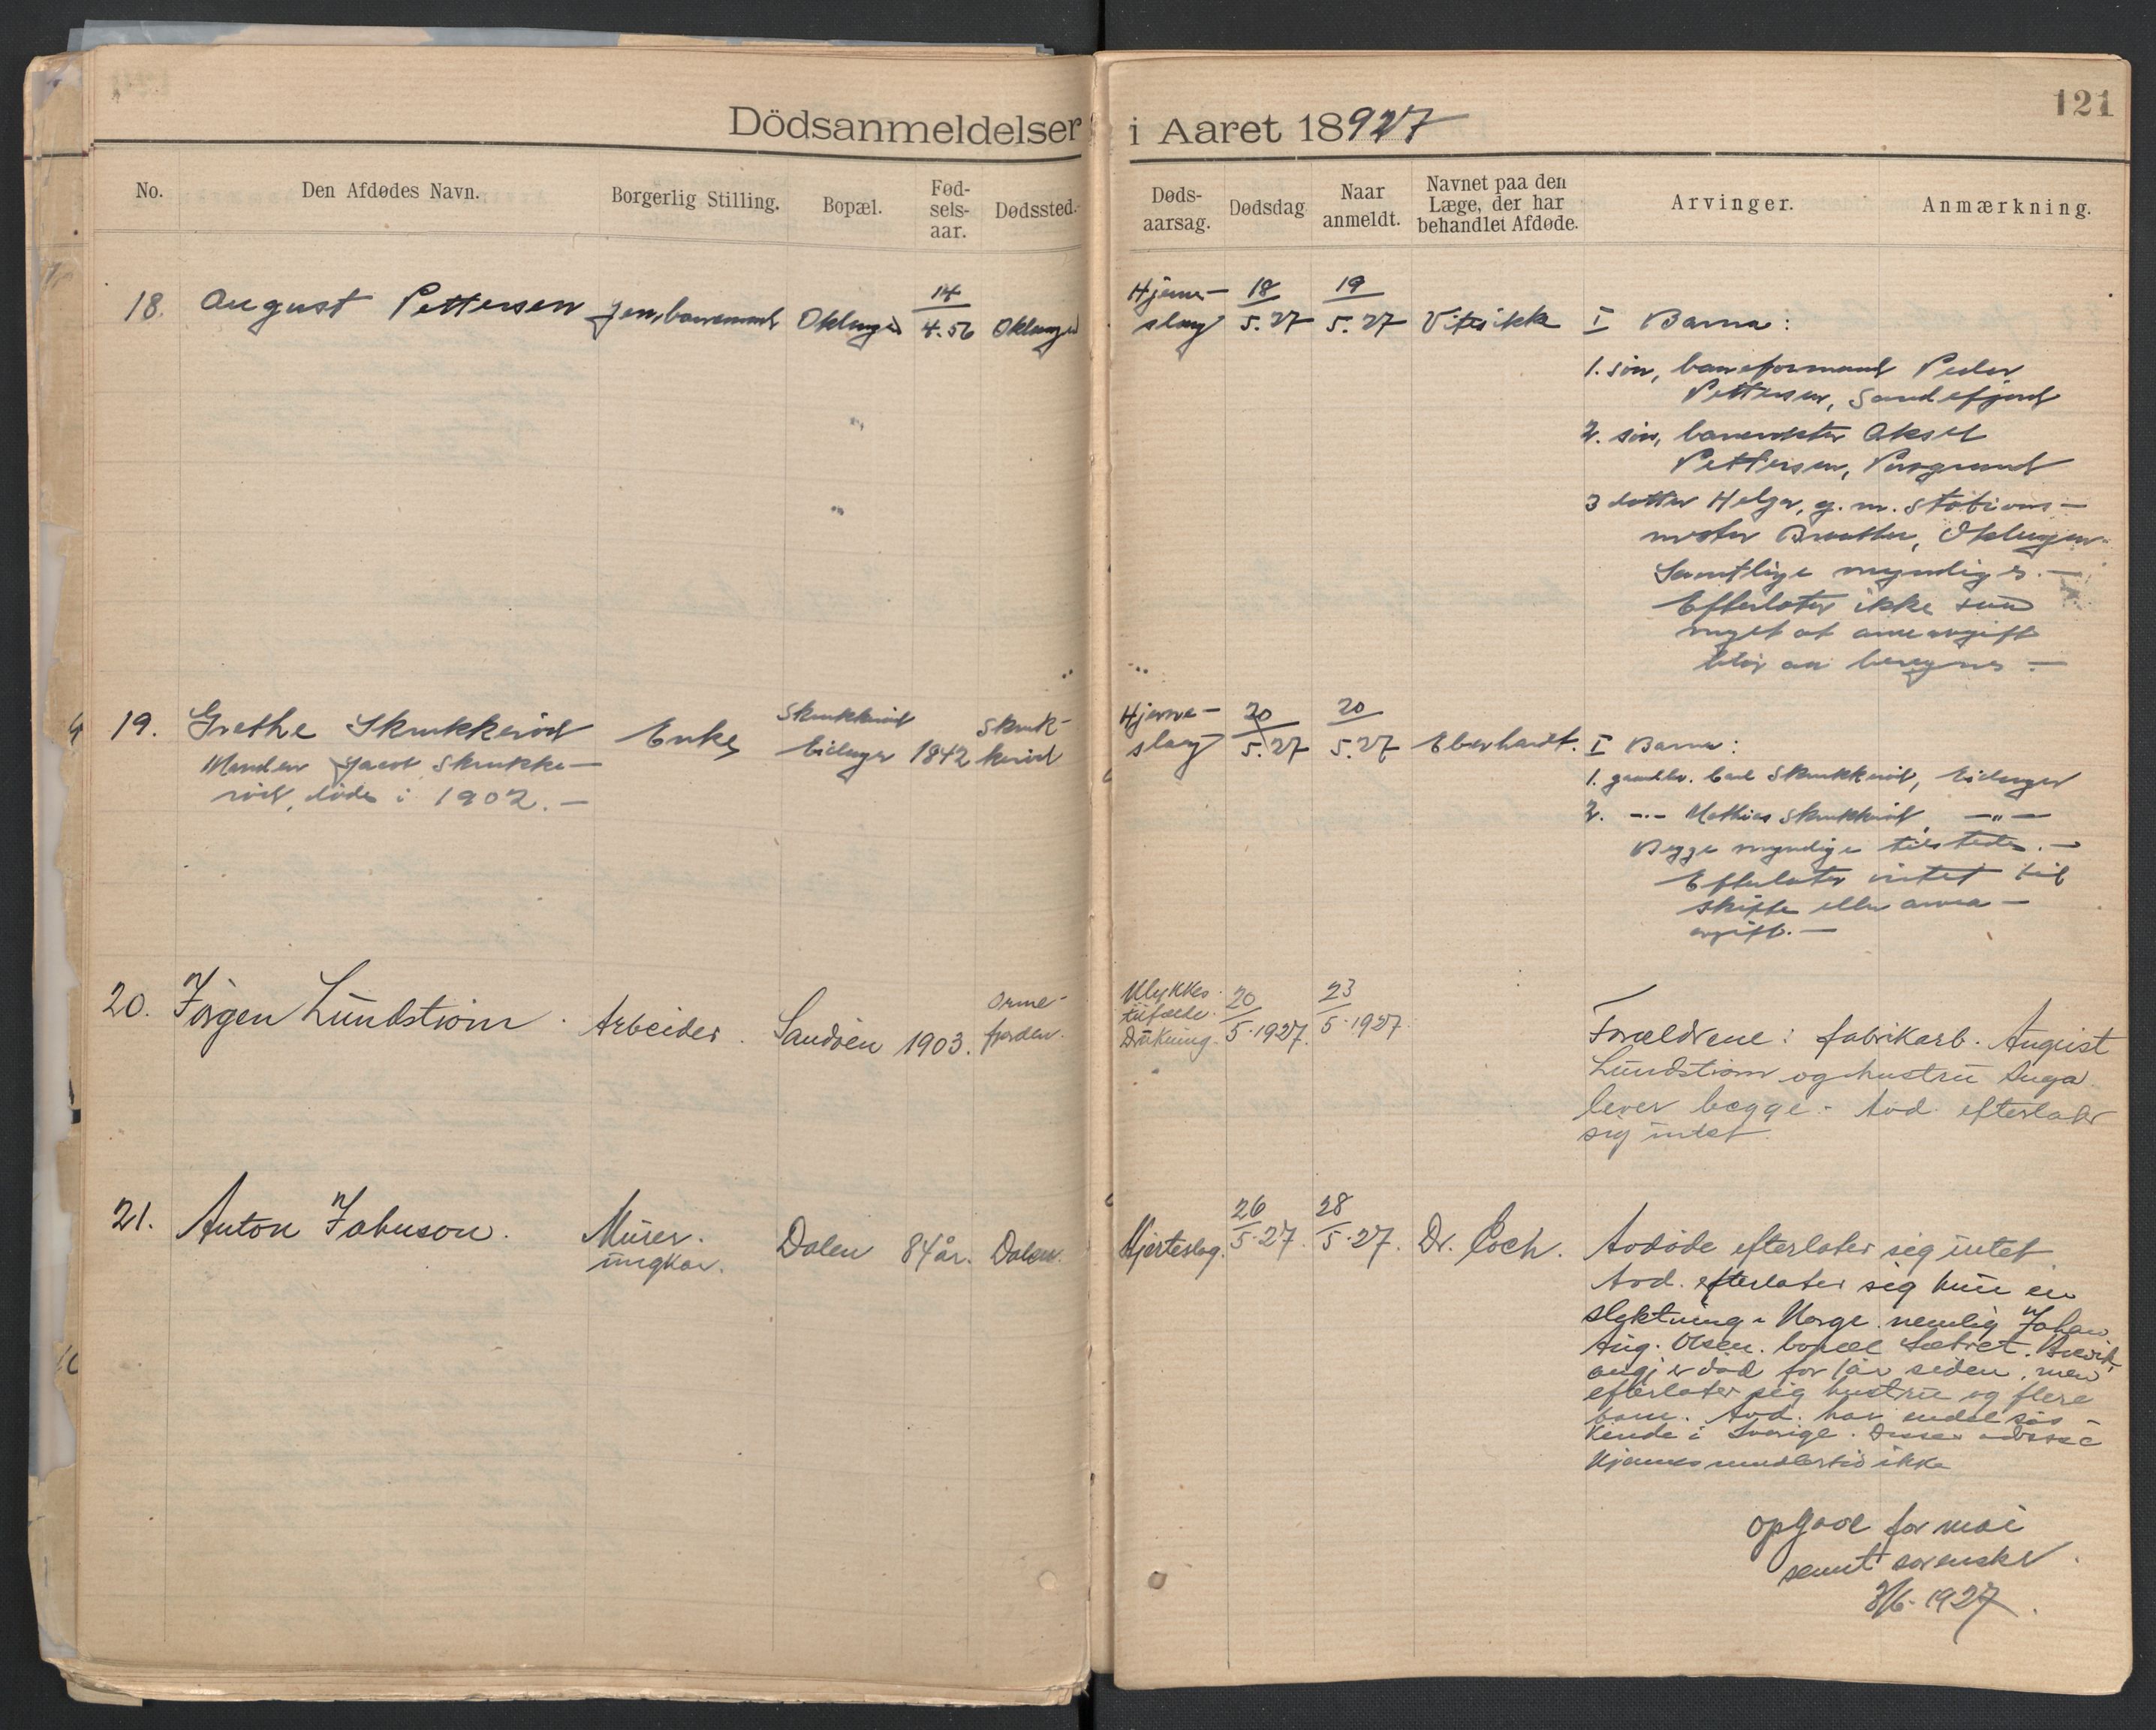 121
Dödsanmeldelser i Aaret 18927
No. Den Afdødes Navn. Borgerlig Stilling. Bopæl. Fød-sels-aar. Dødssted. Døds-aarsag. Dødsdag Naar anmeldt. Navnet paa den Læge, der har behandlet Afdøde. Arvinger. Anmærkning.
18. August Pettersen Jernbanemand Oklungen 14/4.56 Oklungen
Hjerne-
slag 18/5.27 19/5.27 Vites ikke I Barna:
1. søn, baneformand Peder
Pettersen, Sandefjord
2. søn, banevokter Aksel
Pettersen, Porsgrund
3 datter Helga, g. m. stations-
mester Oklungen
Samtlige myndige. -
Efterlater ikke saa
meget at arveavgift
blir at beregnes -
19. Grethe Skrukkerød Enke Skrukkerød
Eidanger 1842 Skruk-
kerød
Manden Jacob Skrukke-
rød, døde i 1902. -
Hjerne-
slag 20/5.27 20/5.27 Eberhardt. I Barna:
1. gaardbr. Carl Skrukkerød, Eidanger
2. -"- Mathias Skrukkerød -"-
Begge myndige tilstede. -
Efterlater intet til
skifte eller arve-
avgift. -
20. Jörgen Lundström. Arbeider. Sandöen 1903. Orme-
fjorden.
Ulykkes
tilfælde.
Drukning. 20/5.1927. 23/5.1927.
Forældrene: fabrikarb. August
Lundström og hustru Inga
lever begge. - Avd. efterlater
sig intet.
21. Anton Johnson. Murer.
ungkar. Dalen 84 år. Dalen.
Hjerteslag. 26/5.27. 28/5.27. Dr. Coch. Avdöde efterlater sig intet
Avd. efterlater sig kun en
slektning i Norge. nemlig Johan
Aug. Olsen. bopæl Sætret. Brevik,
er död for 1 år siden, men
efterlater sig hustru og flere
barn. Avd. har endel sös-
kende i Sverige. Disses adresse
kjennes imidlertid ikke
Opgave for mai
sendt sorenskr.
3/6.1927.